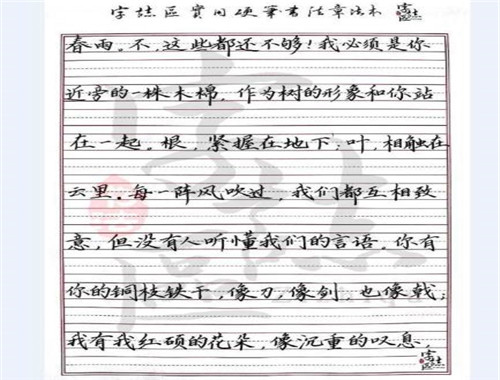 字誌區實用硬筆書法章法本
春雨。不,这些都还不够!我必须是你
近旁的一株木棉,作为树的形象和你站
在一起。根,紧握在地下;叶,相触在
云里。每一阵风吹过,我们都互相致
意,但没有人听懂我们的言语。你有
你的铜枝铁干,像刀,像剑,也像戟;
我有我红硕的花朵,像沉重的叹息,